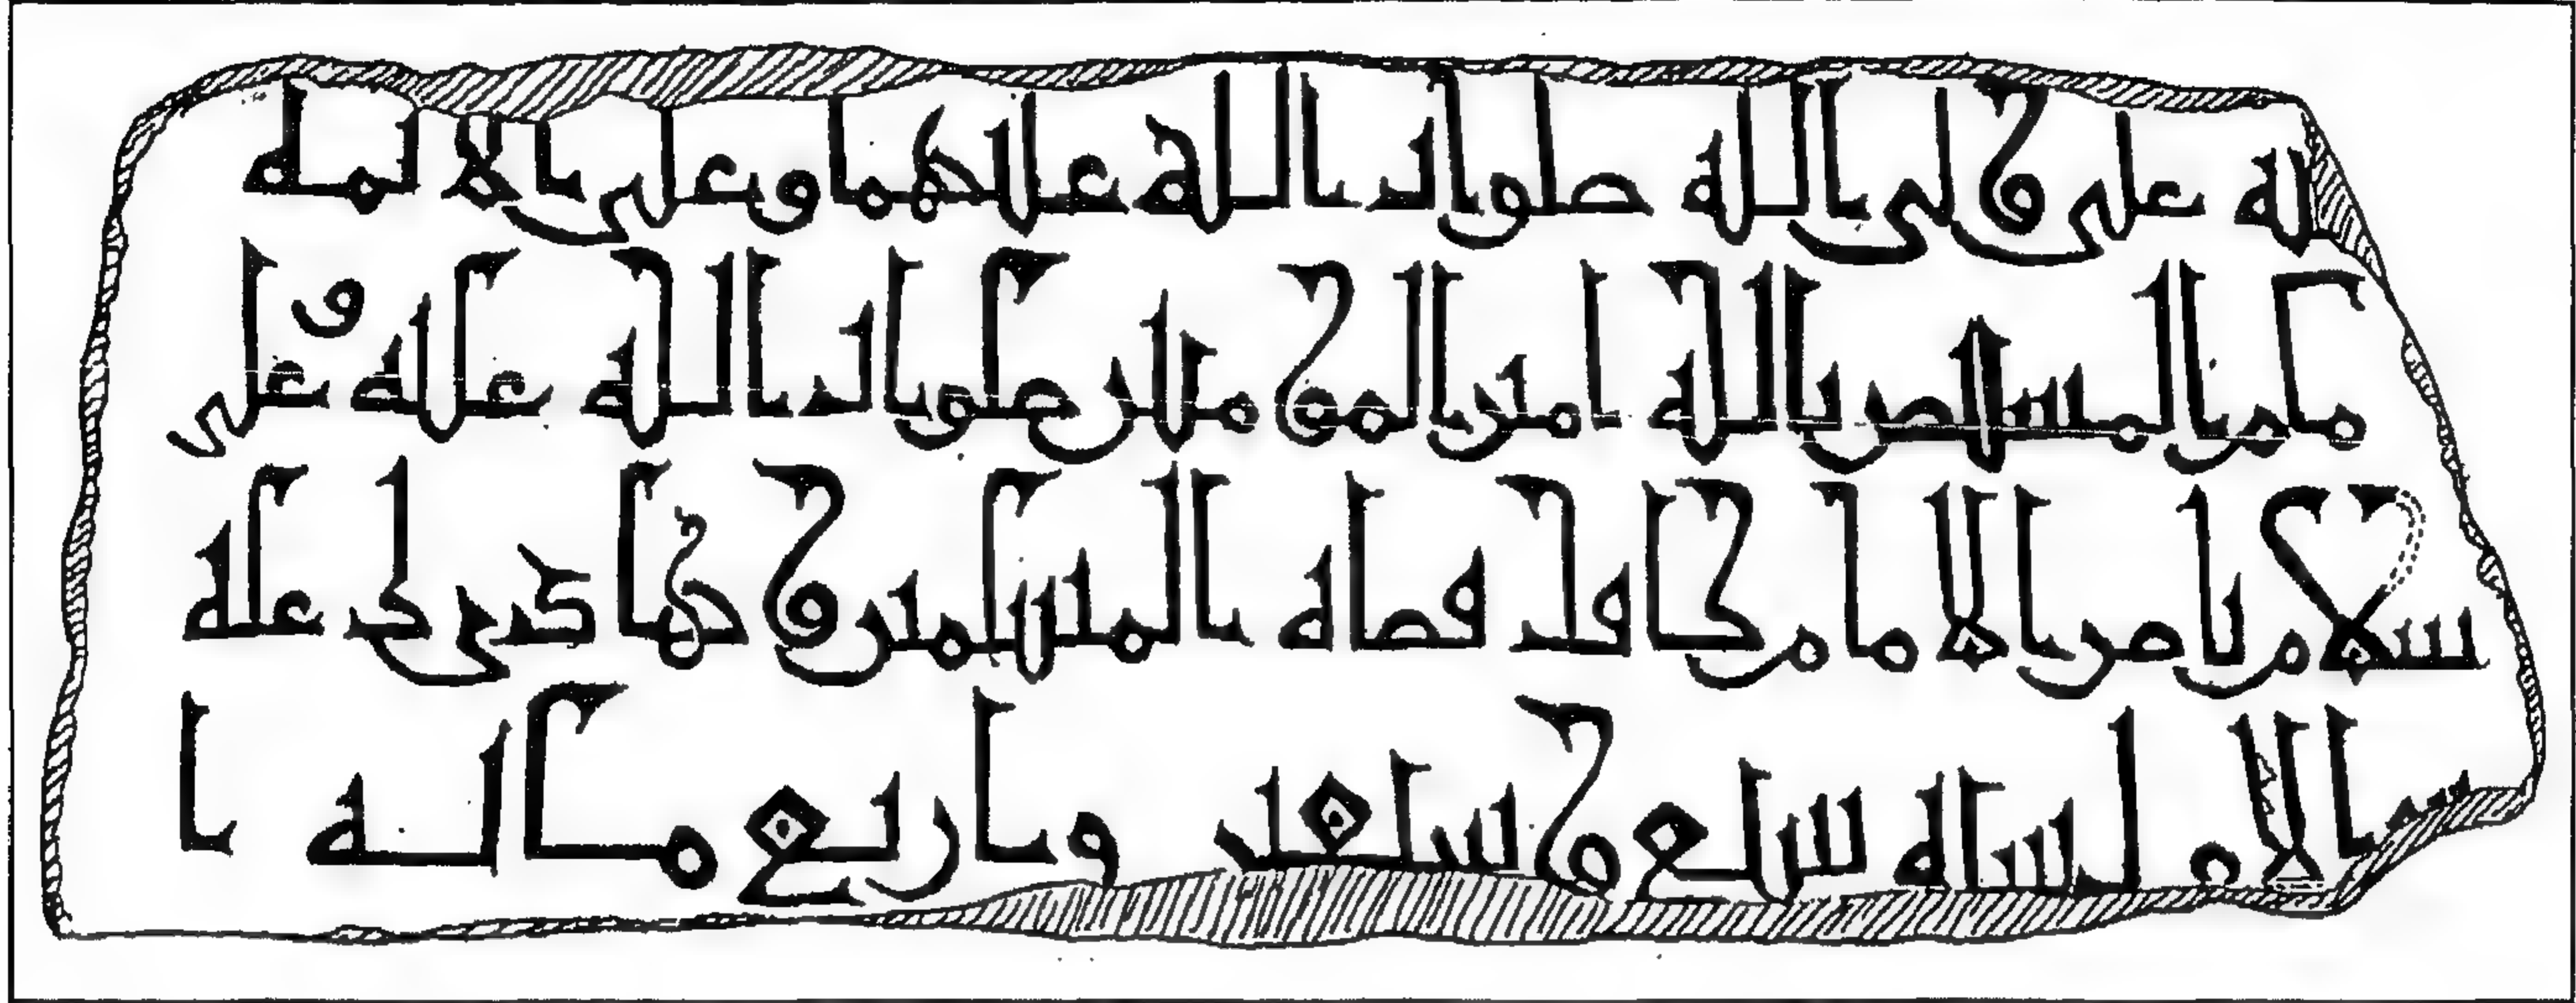 له على ولي الله صلوات الله عليهما وعلى الائمة
مام المستنصر بالله امير المؤمنين صلوات الله عليه وعلى
سلام ناصر الامام كافل قضاة المسلمين وهادي دعاة
الاول سنة سبع وسبعين واربع مائة ا